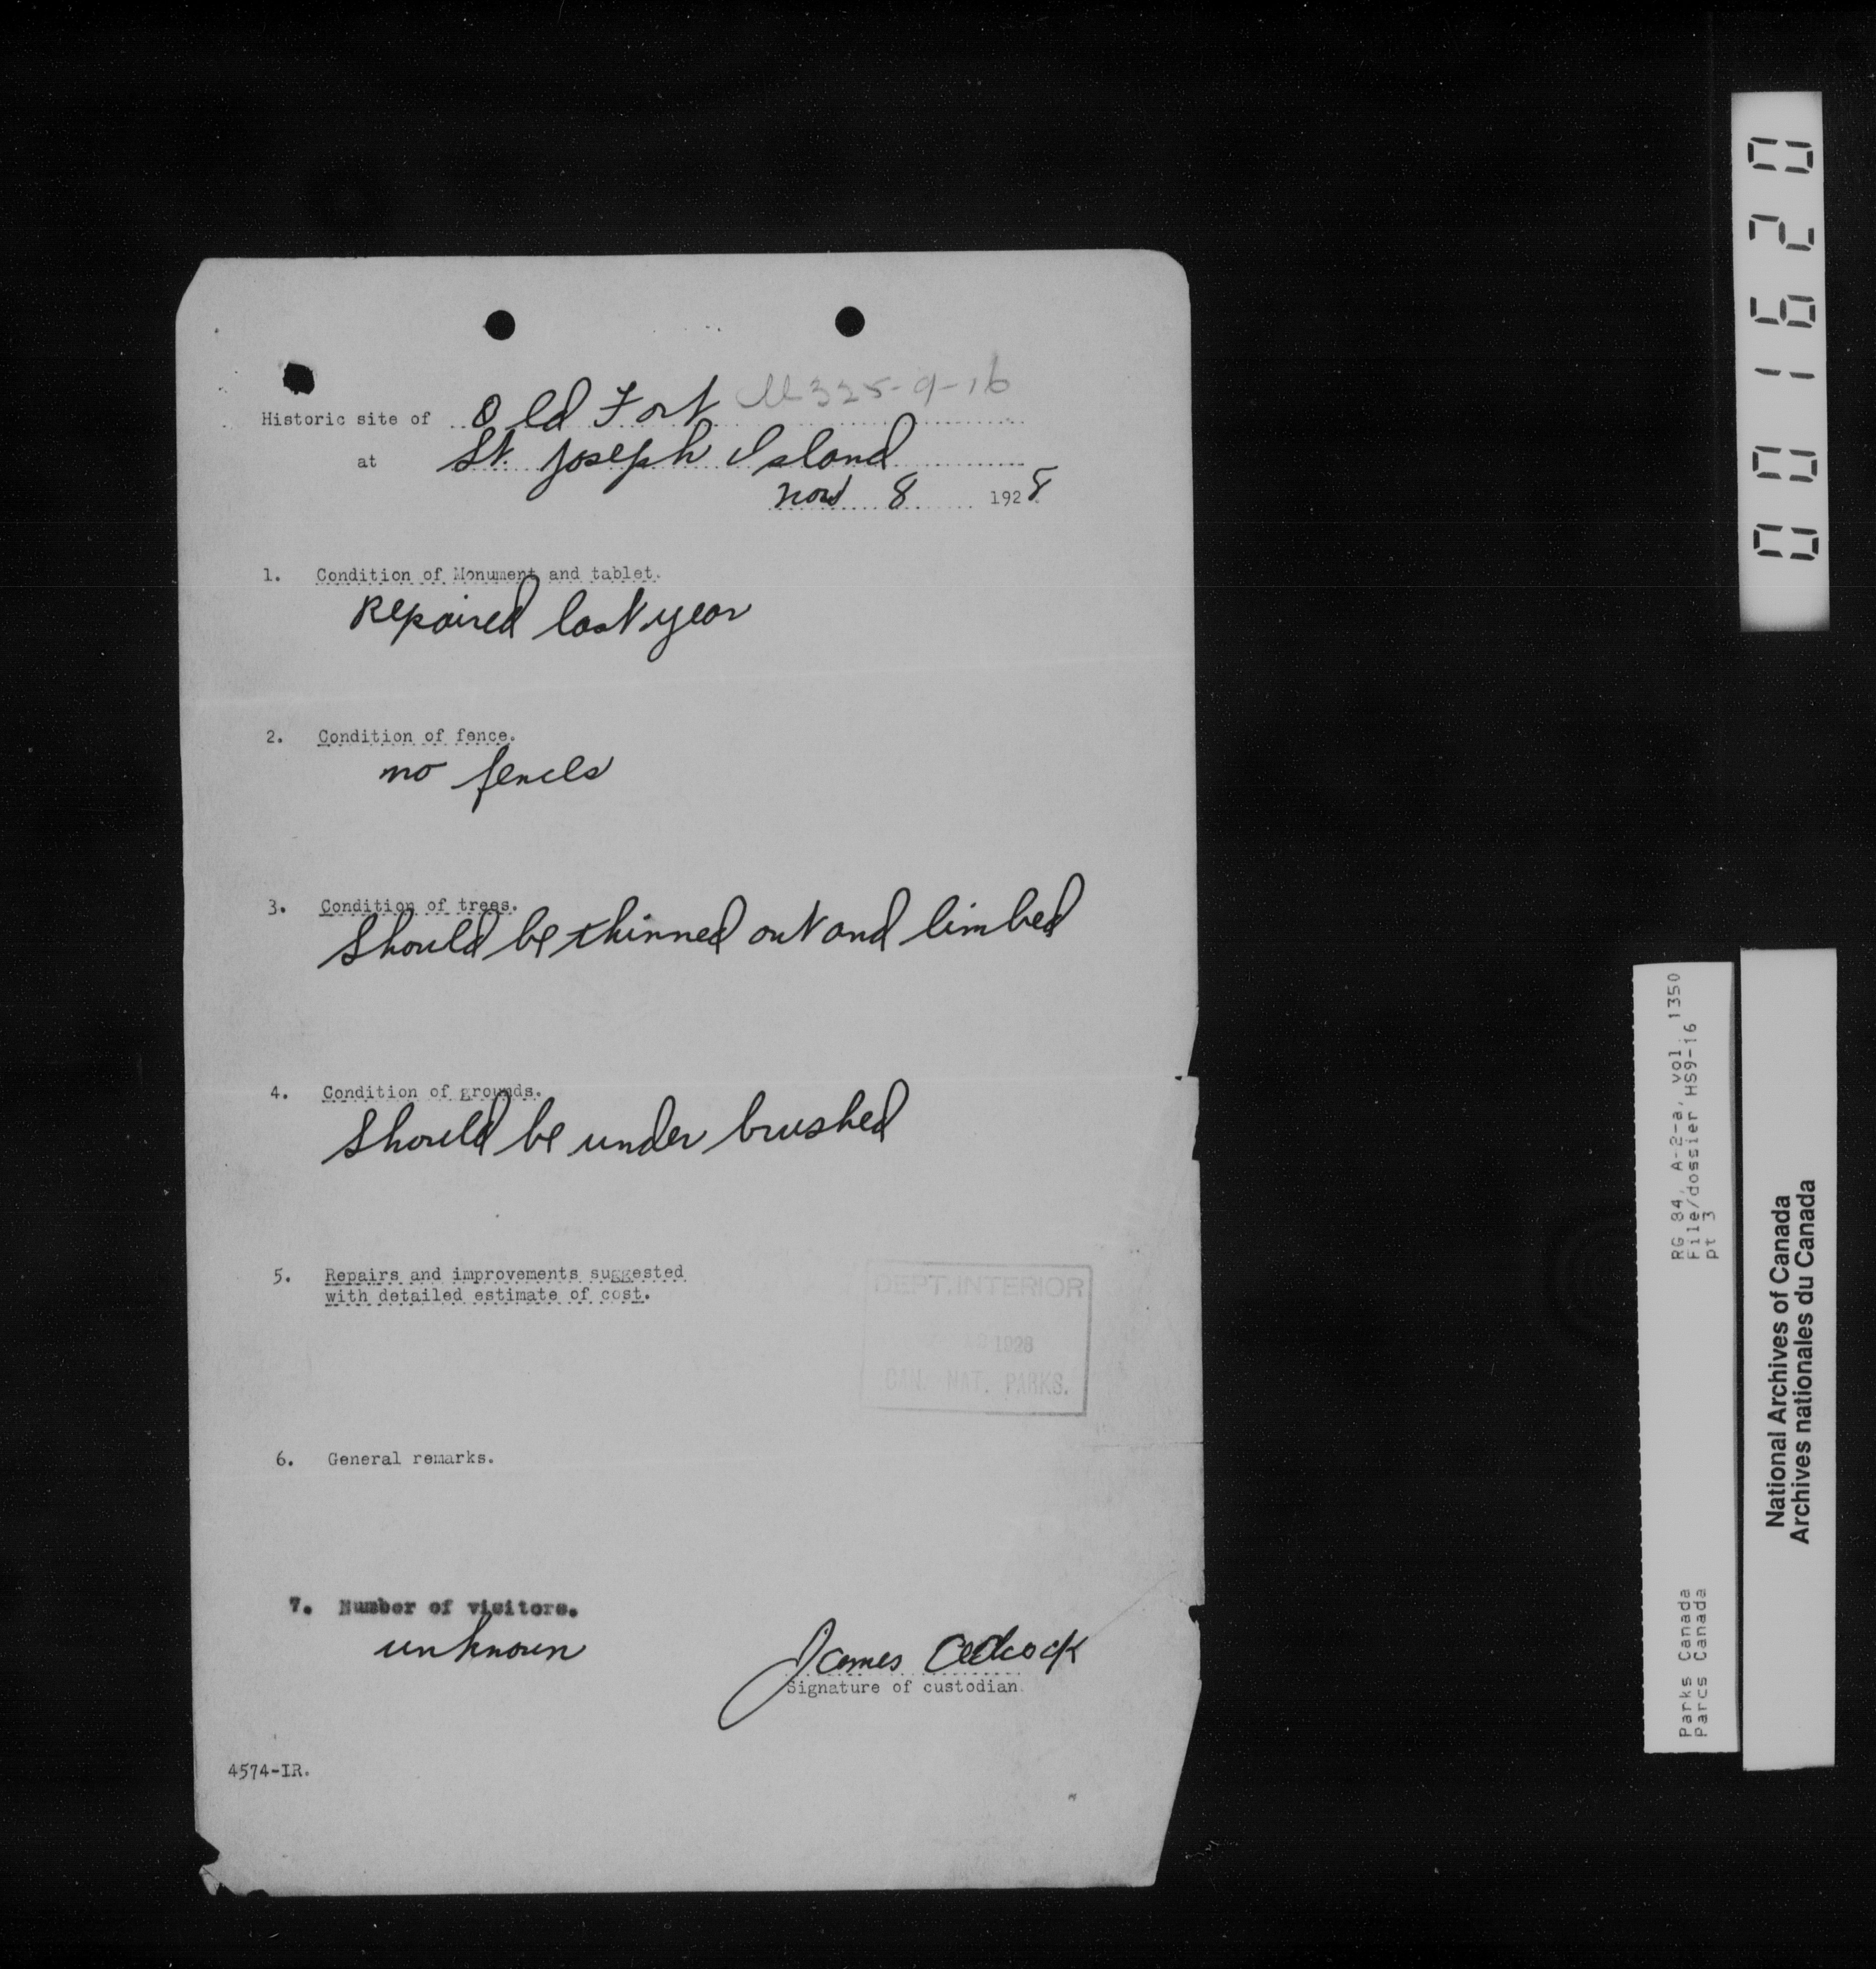 M325-9-16
Historic site of Old Fort
at St. Joseph Island
Nov 8 1928
1. Condition of Monument and tablet.
Repaired last year
2. Condition of fence.
no fences
3. Condition of trees.
Should be thinned out and limbed
4. Condition of grounds.
Should be under brushed
5. Repairs and improvements suggested
with detailed estimate of cost.
DEPT. INTERIOR
1928
CAN. NAT. PARKS.
6. General remarks.
7. Number of visitors.
unknown
James Adcock
Signature of custodian.
4574-IR.
001620
RG 84, A-2-a, vol. 1350
File/dossier HS9-16
pt 3
Parks Canada
Parcs Canada
National Archives of Canada
Archives nationales du Canada